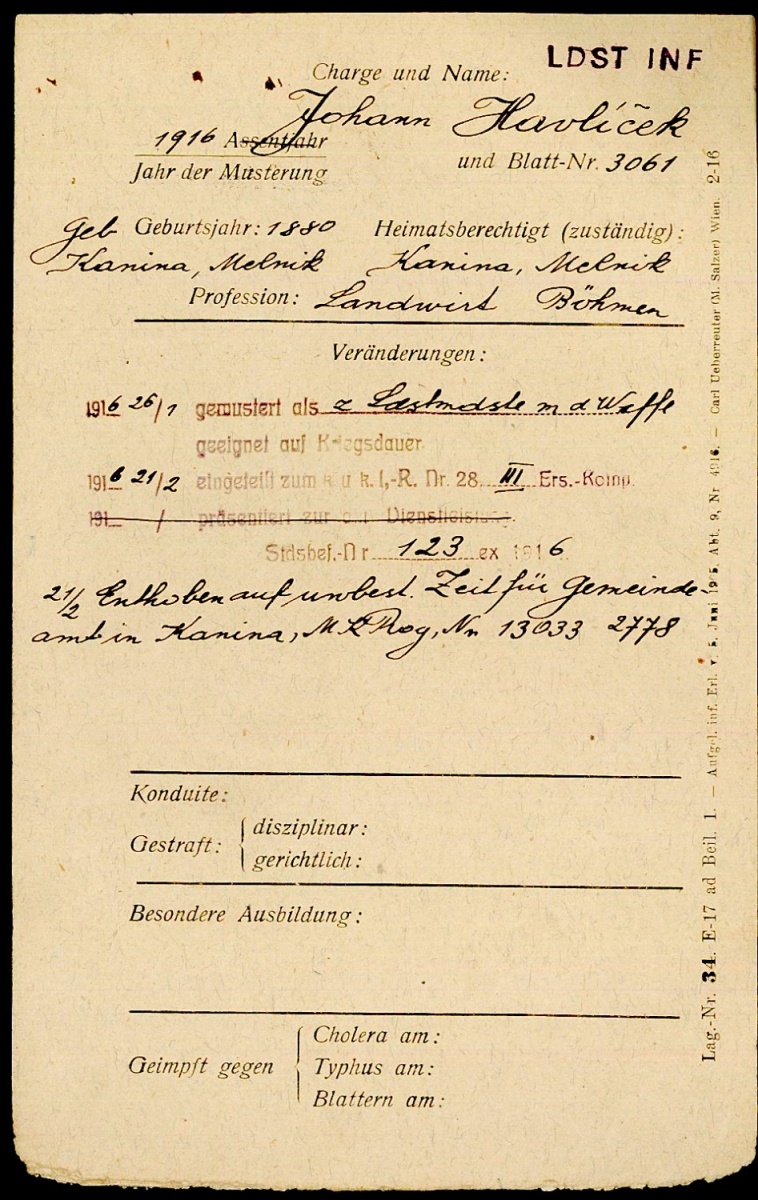 LDST INF
Charge und Name:
Johann Havlíček
1916 Assentjahr
Jahr der Musterung
und Blatt-Nr. 3061
Geb Geburtsjahr: 1880 Heimatsberechtigt (zuständig):
Kanina, Melnik Kanina, Melnik
Profession: Landwirt Böhmen
Veränderungen:
1916 26/1 gemustert als z Ldstmdstle m d Waffe
geeignet auf Kriegsdauer.
1916 21/2 eingeteilt zum k. u. k. I.-R. Nr. 28 III Ers.-Komp.
191 / präsentiert zur Dienstleistung.
Stdsbef.-Nr 123 ex 1916
21/2 Enthoben auf unbest. Zeit für Gemeinde-
amt in Kanina, Nr 13033 2778
Konduite:
Gestraft: disziplinar:
gerichtlich:
Besondere Ausbildung:
Geimpft gegen Cholera am:
Typhus am:
Blattern am:
Lag.-Nr. 34. E-17 ad Beil. 1. — Aufgel. inf. Erl. v. 5. Juni 1915, Abt. 9, Nr. 4916. — Carl Ueberreuter (M. Salzer) Wien. 2-16